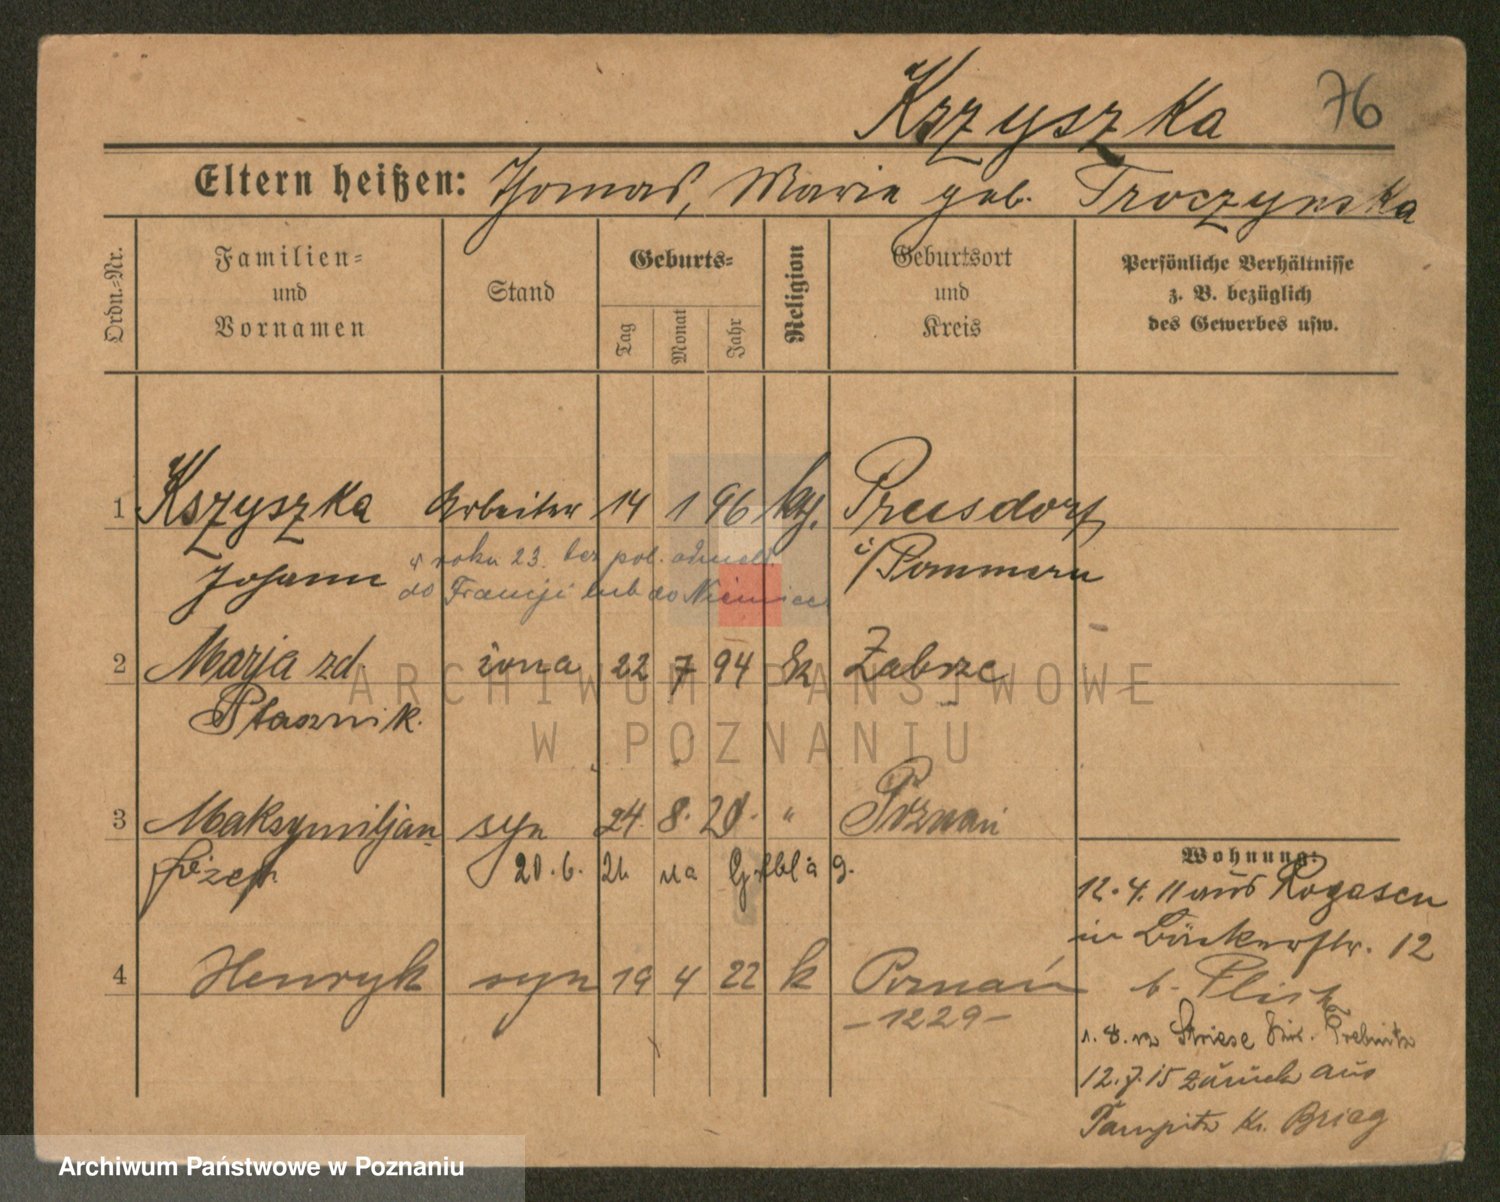 Krzyszka 76
Eltern heißen: Thomas, Marie geb. Troczynska
Ordn.-Nr.
Familien-
und
Vornamen
Stand
Geburts-
Tag
Monat
Jahr
Religion
Geburtsort
und
Kreis
Persönliche Verhältnisse
z. B. bezüglich
des Gewerbes usw.
1 Kszyszka Arbeiter 14 1 96 kth. Preusdorf
Johann i/Pommern
w roku 23. bez pol.
do Francji lub do Niemiec
2 Marja zd. żona 22 7 94 Zabrze
Ptasznik.
3 Maksymiljan syn 24. 8. 20. " Poznań
Józef 20. 6. 21. na 9.
4 Henryk syn 19 4 22 k Poznań
-1229-
Wohnung:
12. 4. 11 aus Rogasen
in Bäckerstr. 12
b.
1. 8. Striese Trebnitz
12. 7. 15 zurück aus
Tampitz Kr. Brieg
ARCHIWUM PAŃSTWOWE
W POZNANIU
Archiwum Państwowe w Poznaniu